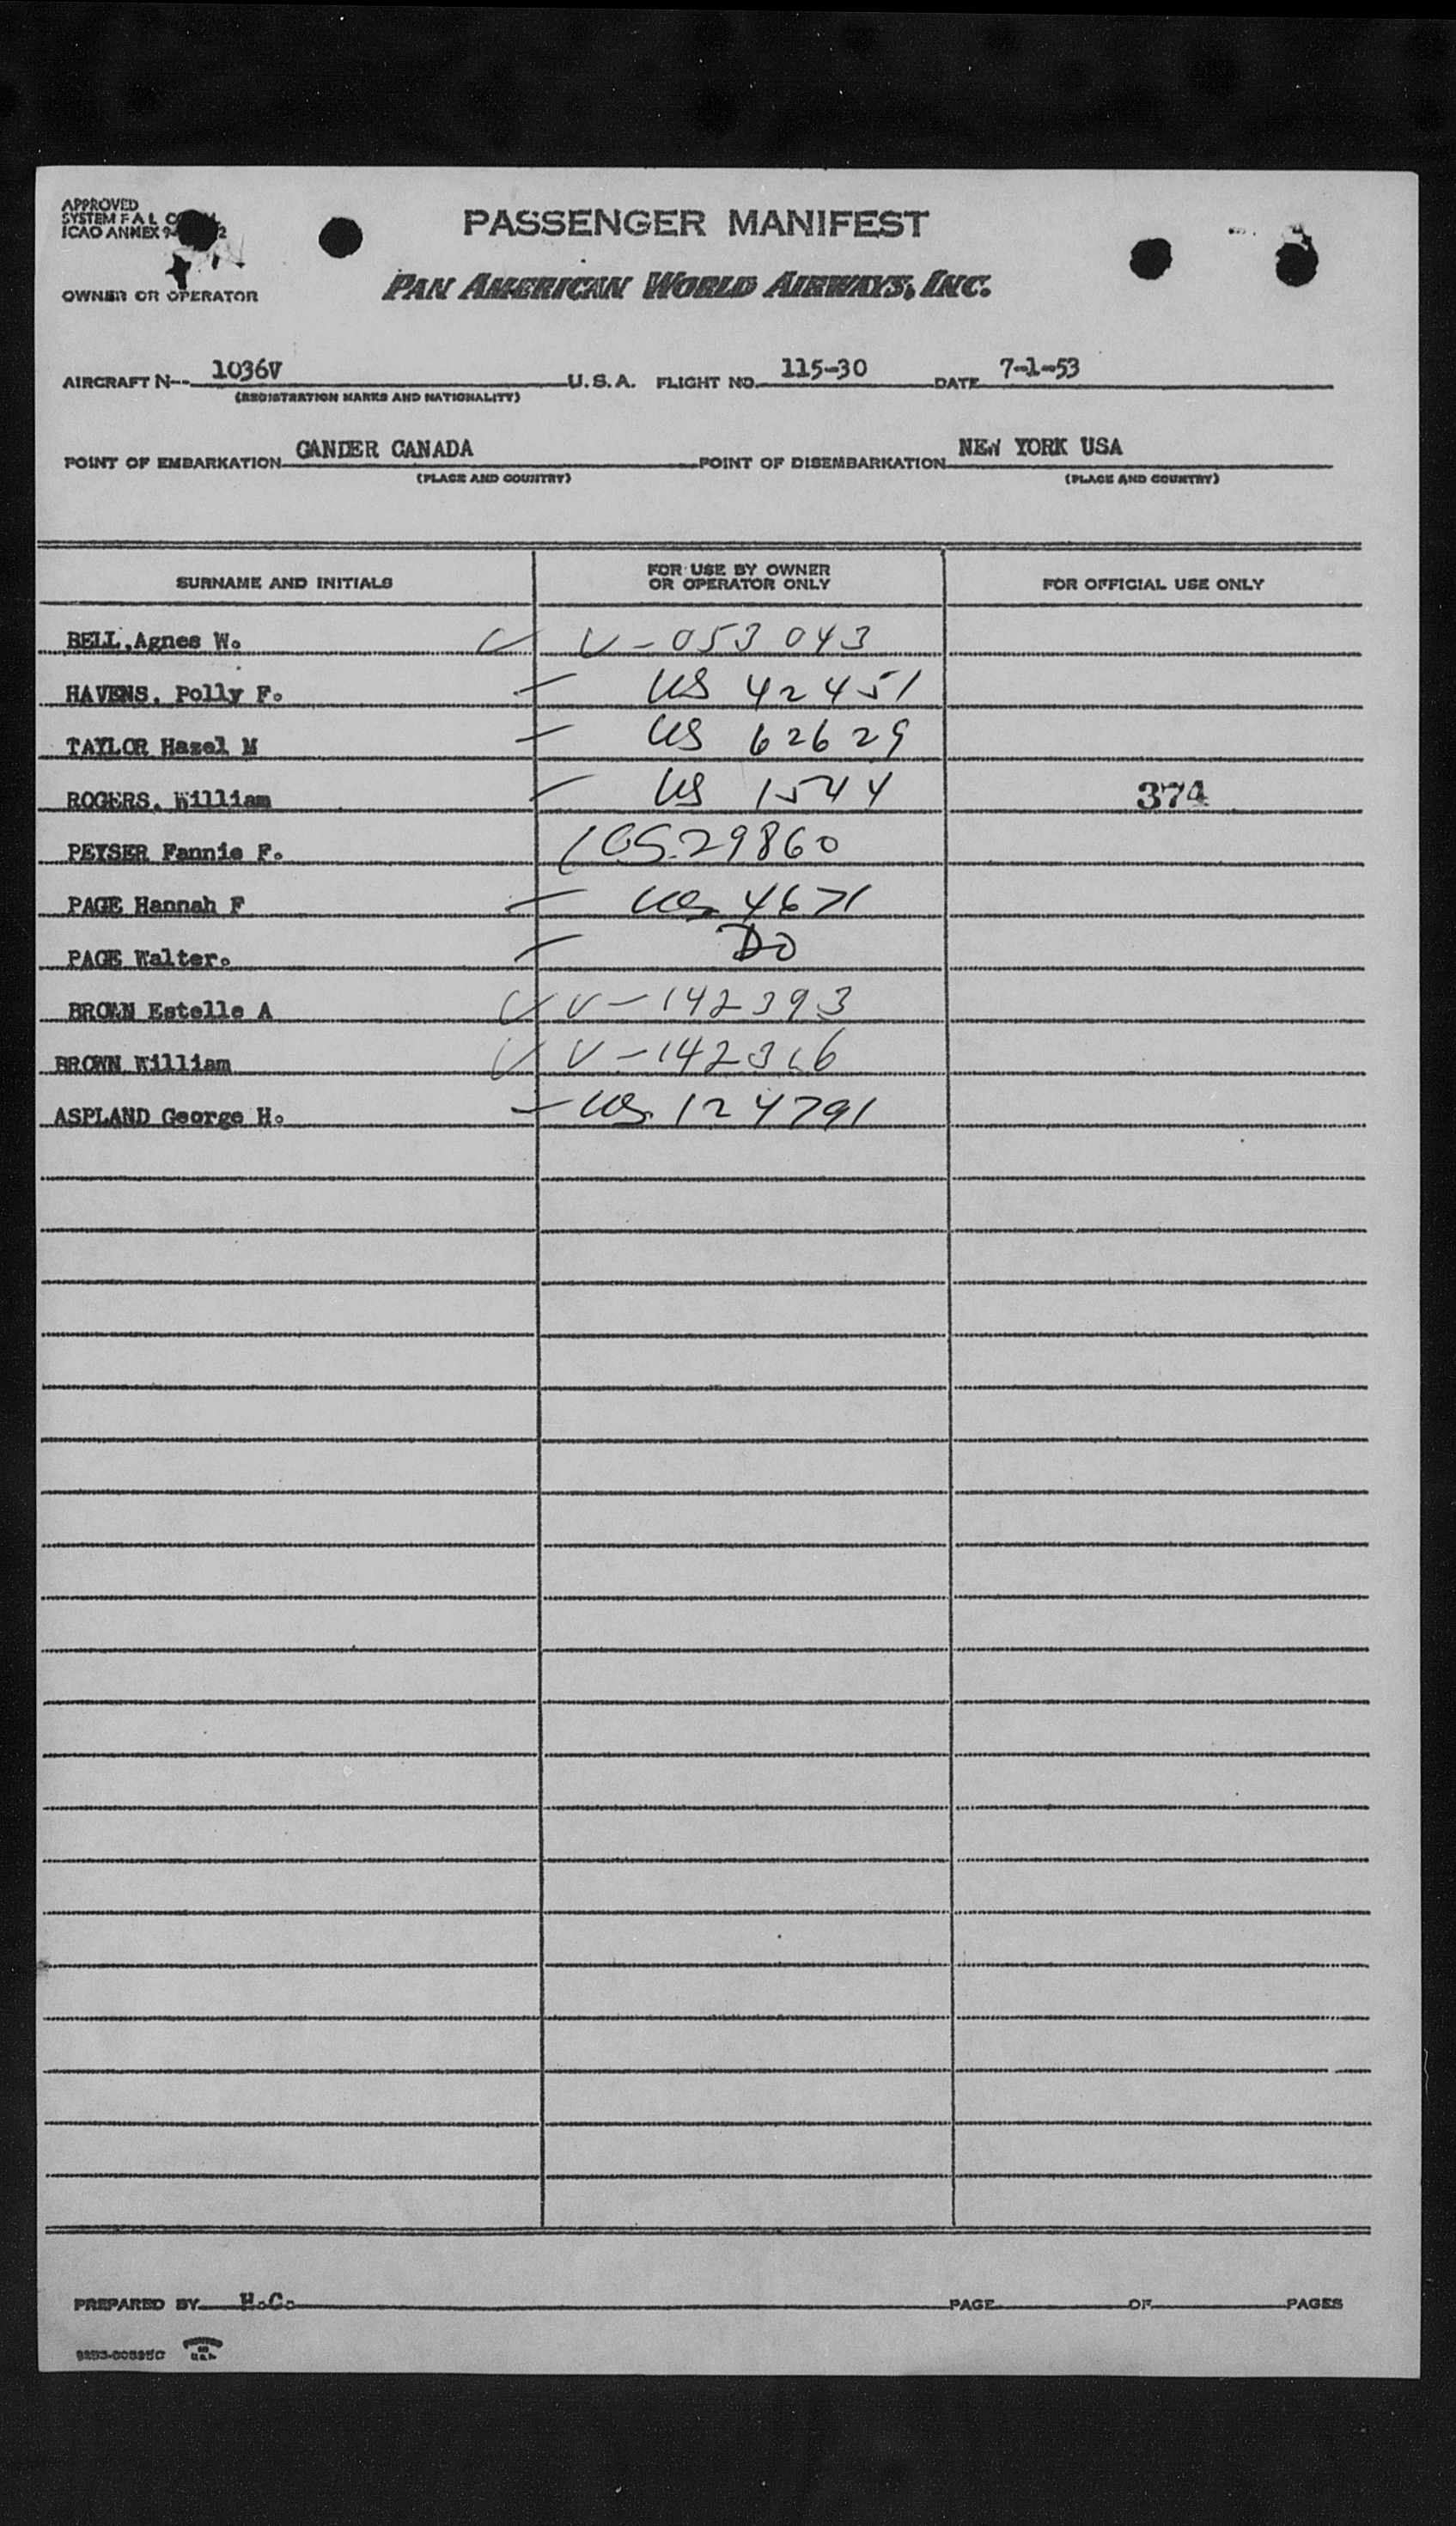 APPROVED
SYSTEM F A L
ICAO ANNEX 9
PASSENGER MANIFEST
OWNER OR OPERATOR
PAN AMERICAN WORLD AIRWAYS, INC.
AIRCRAFT N-- 1036V U.S.A. FLIGHT NO. 115-30 DATE 7-1-53
(REGISTRATION MARKS AND NATIONALITY)
POINT OF EMBARKATION GANDER CANADA POINT OF DISEMBARKATION NEW YORK USA
(PLACE AND COUNTRY) (PLACE AND COUNTRY)
SURNAME AND INITIALS FOR USE BY OWNER OR OPERATOR ONLY FOR OFFICIAL USE ONLY
BELL,Agnes W. V-053043
HAVENS. Polly F. US 42451
TAYLOR Hazel M US 62629
ROGERS. William US 1544 374
PEYSER Fannie F. US.29860
PAGE Hannah F US 4671
PAGE Walter. DO
BROWN Estelle A V-142393
BROWN William
ASPLAND George H. US. 124791
PREPARED BY H.C. PAGE OF PAGES